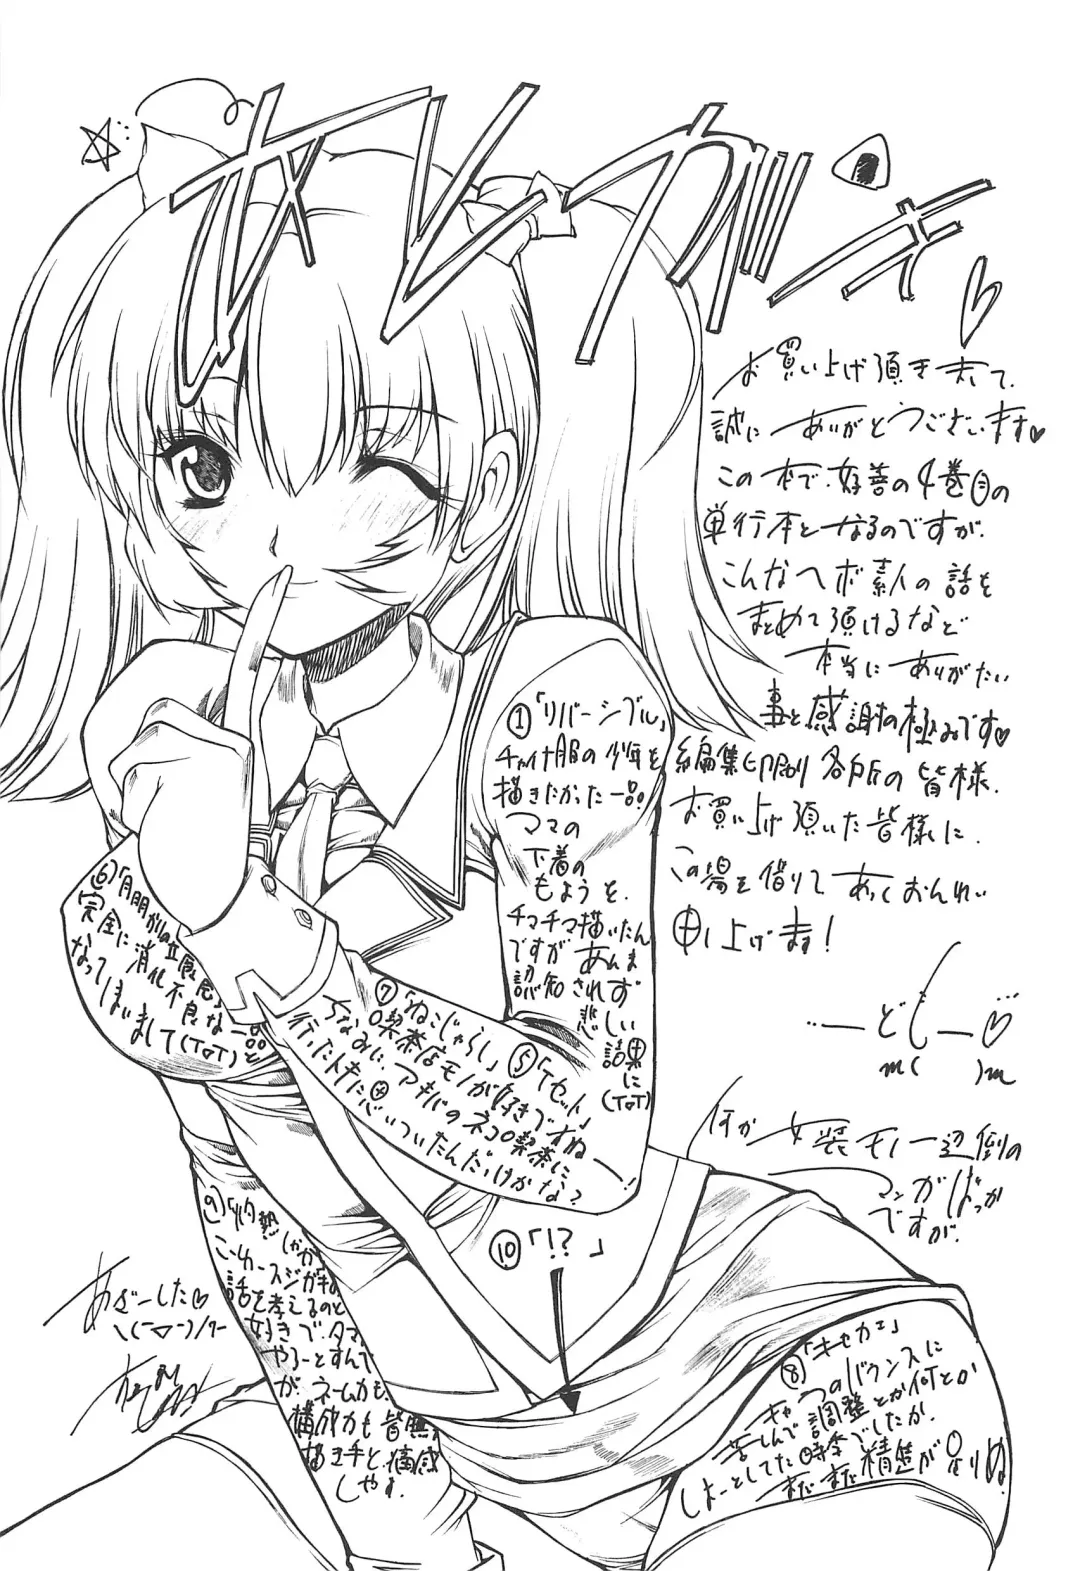 オレガノ
お買い上げ頂きまして、
誠に ありがとうございます♡
この本で、好善の4巻目の
単行本となるのですが、
こんなヘボ素人の話を
まとめて頂けるなど
本当に ありがたい
事と感謝の極みです♡
編集、印刷、各所の皆様、
お買い上げ頂いた皆様に、
この場を借りて あつくおんれい
申し上げます!
…ーどもー♡
m( )m
何か 女装モノ一辺倒の
マンガばっか
ですが、
①「リバーシブル」
チャイナ服の少年を
描きたかった一品!
ママの
下着の
もようを、
チマチマ描いたん
ですが あんま
認知されず
悲しい
結果に
(ToT)
⑤「Tセット」
⑥
完全に消化不良な一品と
なってしまいまして(ToT)
⑦「ねこじゃらし」
喫茶店モノが好きですねー!
ちなみに、アキバのネコ喫茶に
行ったトキに思いついたんだっけかな?
⑧「キセカエ」
キャラのバウンスに
苦しんで調整とか何とか
しよーとしてた時分でしたか、
まだまだ精進が足りぬ。
⑨「灼熱
話を考えるのと
好きで、タマ
やろーとすんで
が、ネームカも、
構成力も皆無
描き手と、痛感
しやす。
⑩「!?」
あざーした♡
\(ー▽ー)/ワー